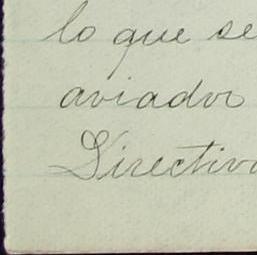 lo que se
aviador
Directiv